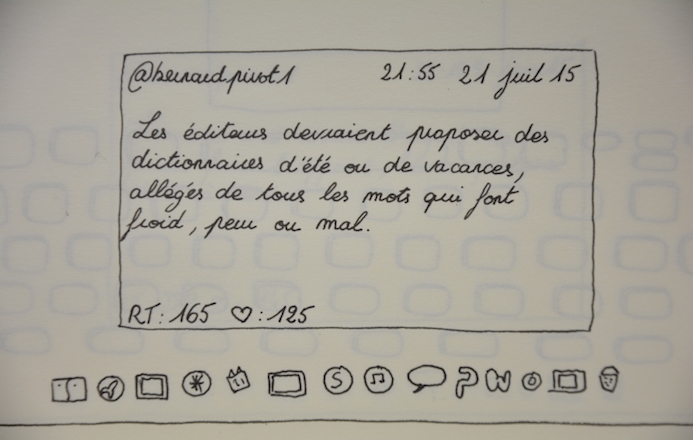 @bernardpivot1 21:55 21 juil 15
Les éditeurs devraient proposer des
dictionnaires d'été ou de vacances,
allégés de tous les mots qui font
froid, peur ou mal.
RT: 165 ♡: 125
S P W